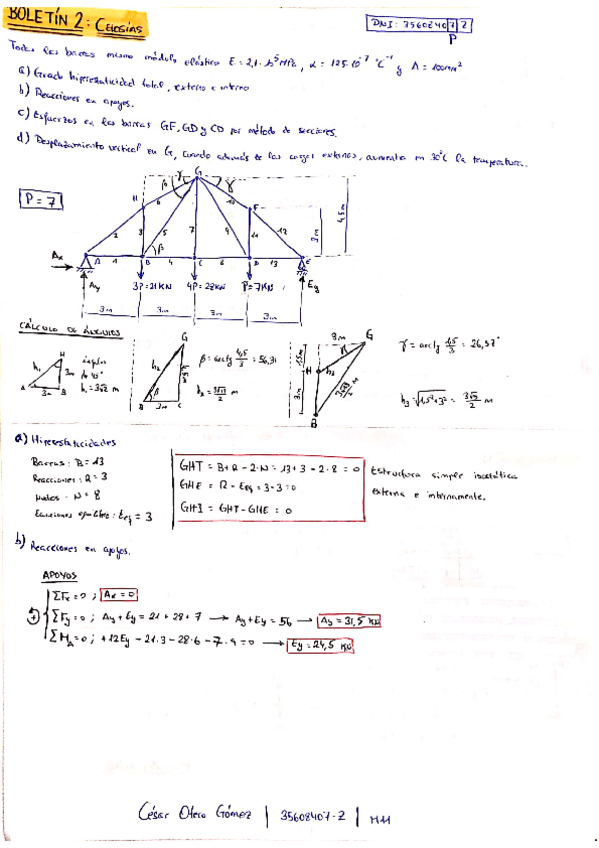 BOLETÍN 2: CELOSÍAS
DNI: 35608407 Z
P
Todas las barras mismo módulo elástico E = 2,1·10⁵ MPa, α = 125·10⁻⁷ °C⁻¹ y A = 100mm²
a) Grado hiperestaticidad total, externo e interno.
b) Reacciones en apoyos.
c) Esfuerzos en las barras GF, GD y CD por método de secciones.
d) Desplazamiento vertical en G, cuando además de las cargas externas, aumenta en 30°C la temperatura.
P = 7
G
β γ γ
H 6 10 F
2 3 5 7 9 11 12
3m 4,5m
Ax A 1 B β 4 C 8 D 13 E
Ay 3P=21KN 4P=28KN P=7KN Ey
3m 3m 3m 3m
CÁLCULO DE ÁNGULOS
H
h₁ 3m
A 3m B
ángulos
de 45°
h₁ = 3√2 m
G
h₂ 4,5m
β
B 3m C
β = arctg 4,5/3 = 56,31
h₂ = 3√13/2 m
3m G
1,5m γ
H h₃
3m 3√13/2 m
B
γ = arctg 1,5/3 = 26,57°
h₃ = √1,5²+3² = 3√5/2 m
a) Hiperestaticidades
Barras: B = 13
Reacciones: R = 3
Nudos: N = 8
Ecuaciones equilibrio: Eeq = 3
GHT = B+R-2·N = 13+3-2·8 = 0
GHE = R - Eeq = 3-3 = 0
GHI = GHT - GHE = 0
Estructura simple isostática
externa e internamente.
b) Reacciones en apoyos.
APOYOS
ΣFx = 0; Ax = 0
ΣFy = 0; Ay + Ey = 21 + 28 + 7 → Ay + Ey = 56 → Ay = 31,5 KN
ΣM_A = 0; +12Ey - 21·3 - 28·6 - 7·9 = 0 → Ey = 24,5 KN
César Otero Gómez | 35608407-Z | M11